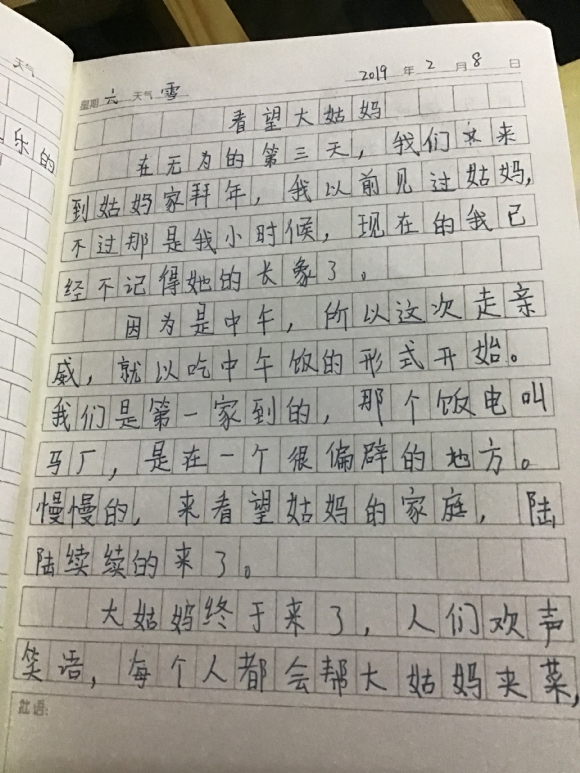 天气
乐的
2019 年 2 月 8 日
星期 六 天气 雪
看望大姑妈
在无为的第三天，我们来
到姑妈家拜年，我以前见过姑妈，
不过那是我小时候，现在的我已
经不记得她的长象了。
因为是中午，所以这次走亲
威，就以吃中午饭的形式开始。
我们是第一家到的，那个饭电叫
马厂，是在一个很偏辟的地方。
慢慢的，来看望姑妈的家庭，陆
陆续续的来了。
大姑妈终于来了，人们欢声
笑语，每个人都会帮大姑妈夹菜，
批语: